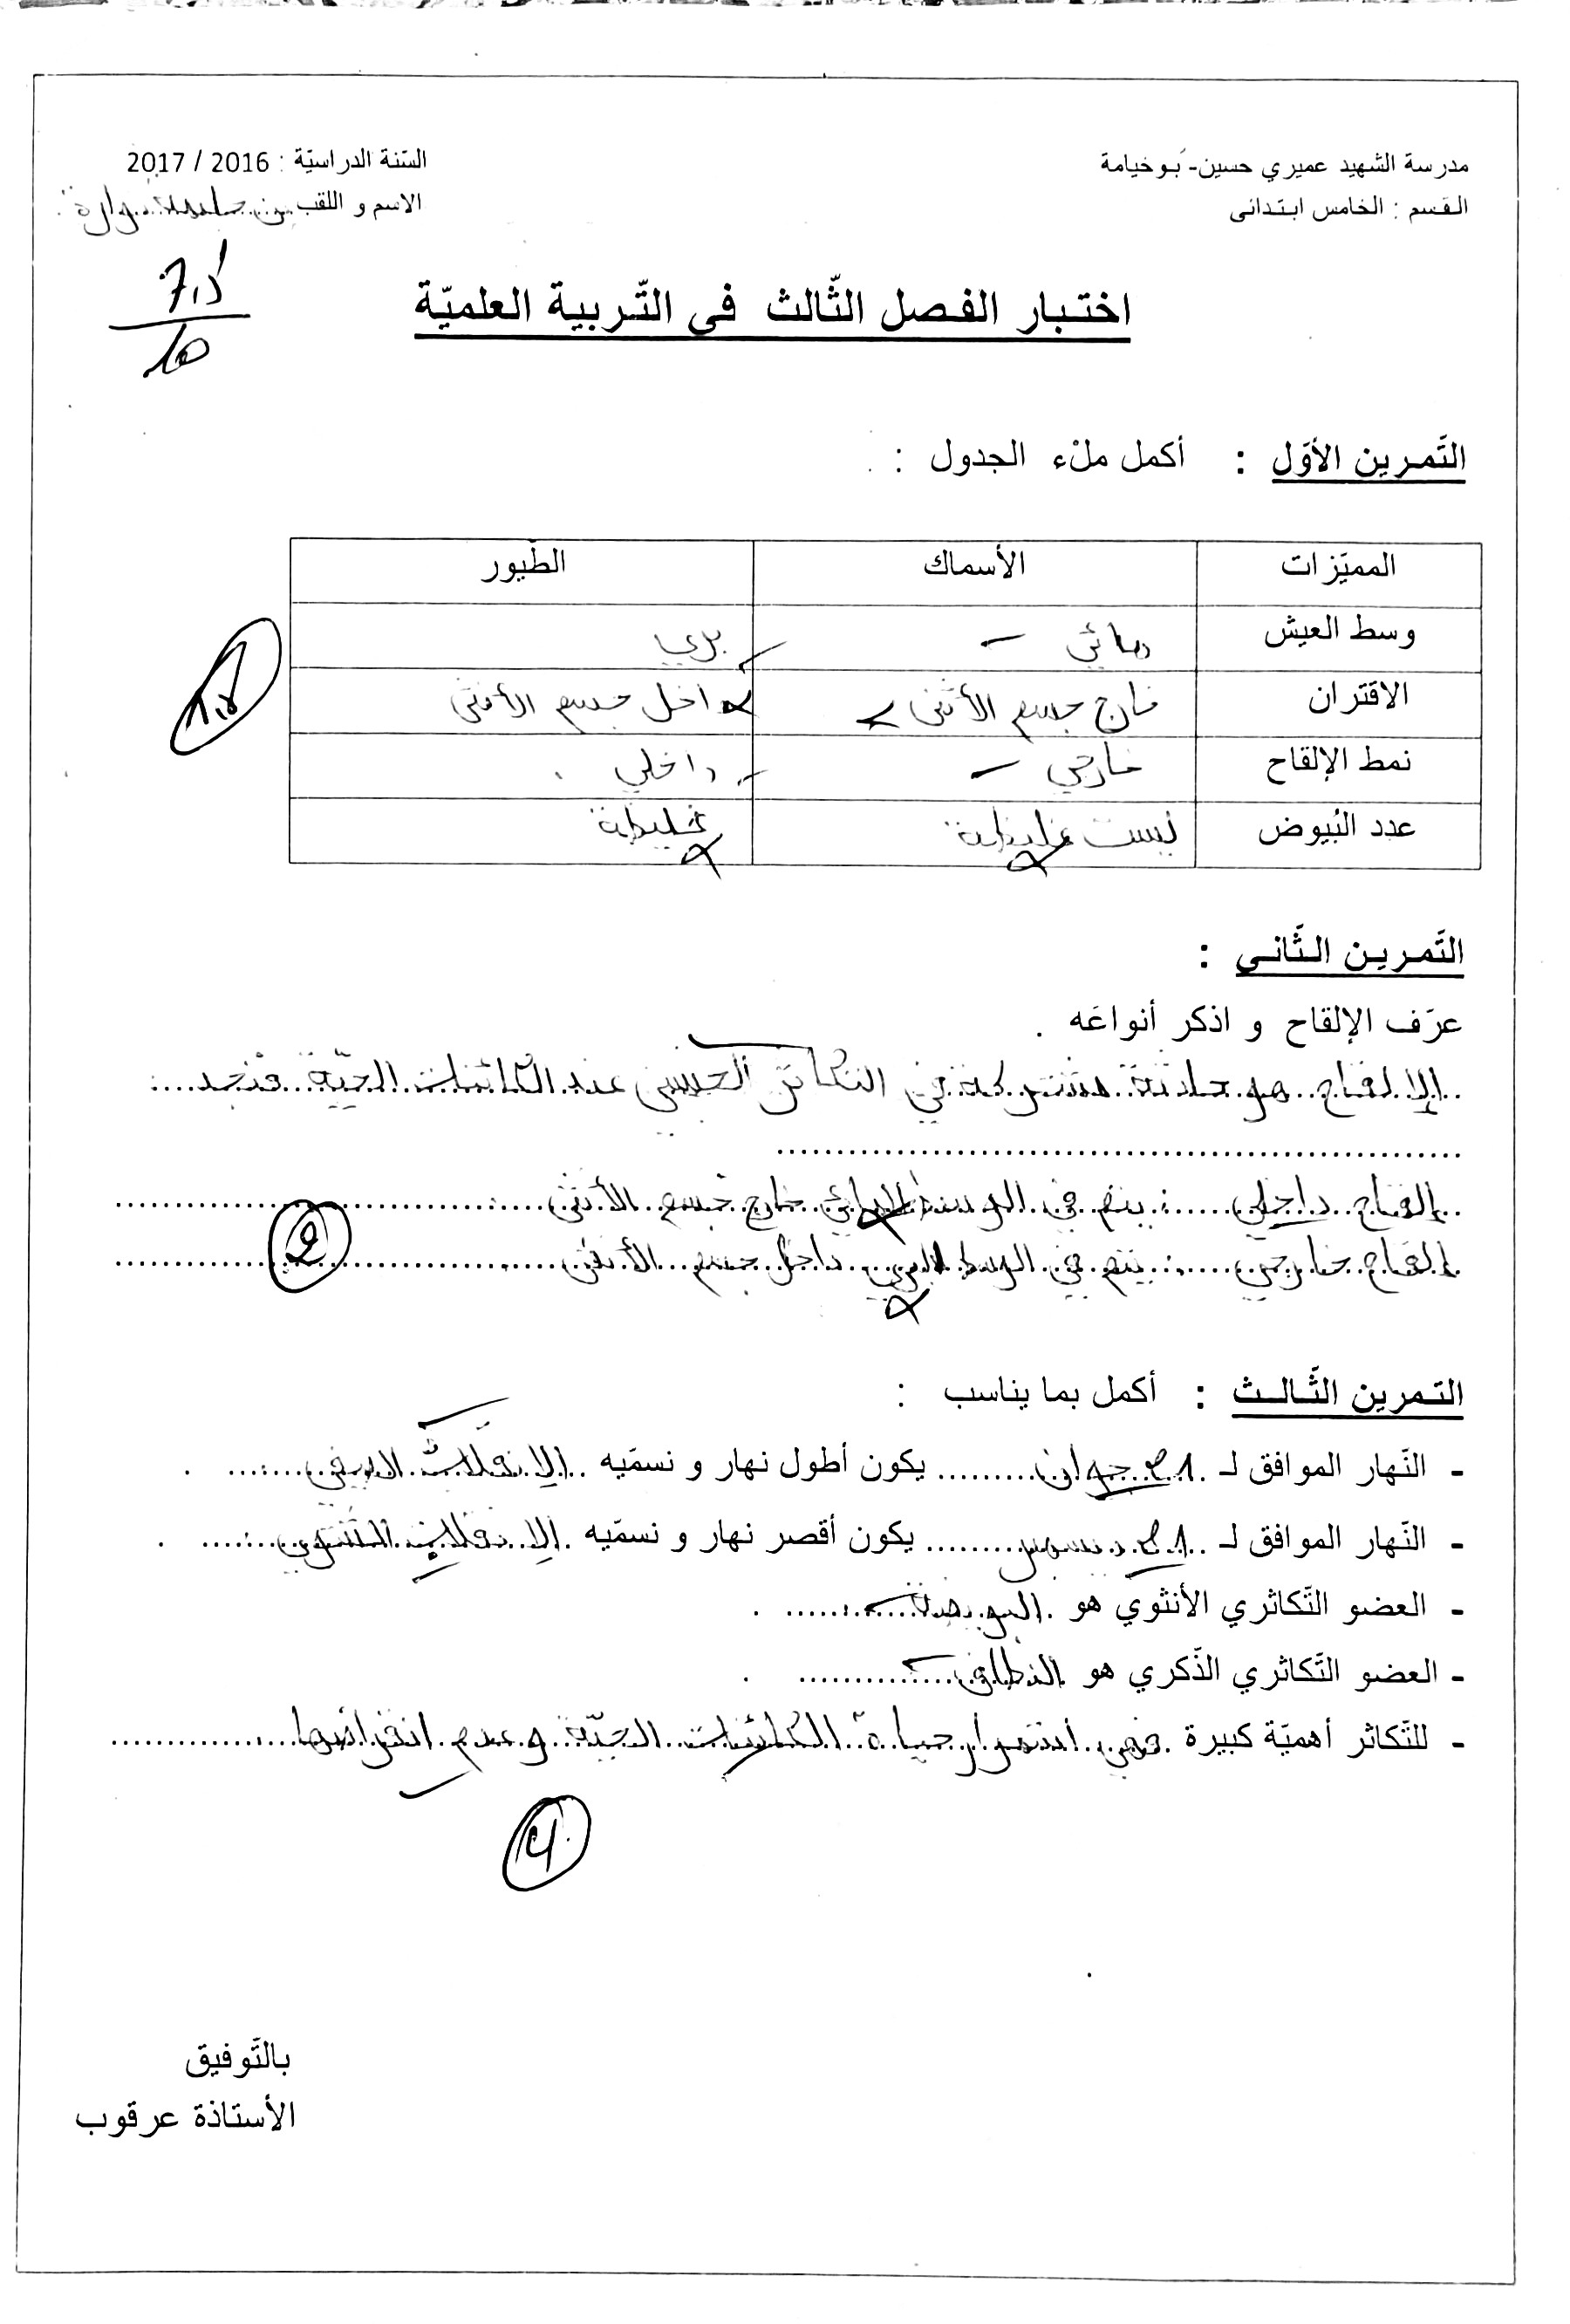 مدرسة الشهيد عميري حسين- بوخيامة
السّنة الدراسيّة : 2016 / 2017
القسم : الخامس ابتدائى
الاسم و اللقب
اختبار الفصل الثّالث فى التّربية العلميّة
التّمرين الأوّل : أكمل ملْء الجدول :
المميّزات الأسماك الطّيور
وسط العيش مائي بري
الاقتران خارج جسم الأنثى داخل جسم الأنثى
نمط الإلقاح خارجي داخلي
عدد البُيوض ليست غليظة غليظة
التّمرين الثّاني :
عرّف الإلقاح و اذكر أنواعَه .
الإلقاح هو حادثة مشتركة في التكاثر الجنسي عند الكائنات الحيّة فنجد :
إلقاح داخلي : يتم في الوسط المائي خارج جسم الأنثى
2
إلقاح خارجي : يتم في الوسط البري داخل جسم الأنثى
التمرين الثّالث : أكمل بما يناسب :
- النّهار الموافق لـ 21 جوان يكون أطول نهار و نسمّيه الإنقلاب الصيفي .
- النّهار الموافق لـ 21 ديسمبر يكون أقصر نهار و نسمّيه الإنقلاب الشتوي .
- العضو التّكاثري الأنثوي هو البويضة .
- العضو التّكاثري الذّكري هو النطاف .
- للتّكاثر أهميّة كبيرة فهي أستمرار حياة الكائنات الحيّة و عدم انقراضها
4
بالتّوفيق
الأستاذة عرقوب